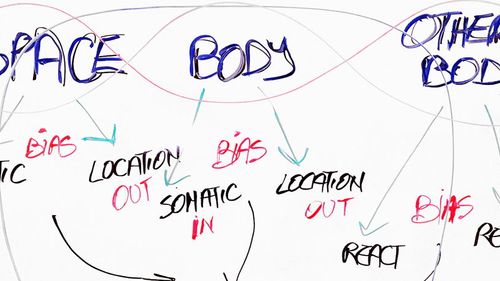 SPACE
BODY
OTHER
BODY
BIAS
TIC
LOCATION
OUT
BIAS
SOMATIC
IN
LOCATION
OUT
BIAS
REACT
RE